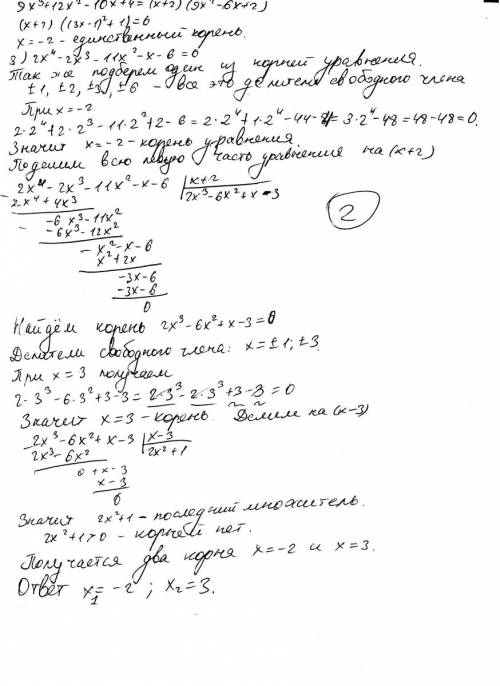 9x³+12x²-10x+4=(x+2)(9x²-6x+2)
(x+2)((3x-1)²+1)=0
x=-2 - единственный корень.
3) 2x⁴-2x³-11x²-x-6=0
Так же подберем один из корней уравнения.
±1, ±2, ±3, ±6 - все это делители свободного члена
При x=-2
2·2⁴+2·2³-11·2²+2-6=2·2⁴+1·2⁴-44-4=3·2⁴-48=48-48=0.
Значит x=-2-корень уравнения.
Поделим всю левую часть уравнения на (x+2)
2x⁴-2x³-11x²-x-6 | x+2
2x⁴+4x³ | 2x³-6x²+x-3
-6x³-11x²
-6x³-12x²
x²-x-6
x²+2x
-3x-6
-3x-6
0
2
Найдём корень 2x³-6x²+x-3=0
Делители свободного члена: x=±1; ±3.
При x=3 получаем
2·3³-6·3²+3-3=2·3³-2·3³+3-3=0
Значит x=3-корень. Делим на (x-3)
2x³-6x²+x-3 | x-3
2x³-6x² | 2x²+1
0+x-3
x-3
0
Значит 2x²+1-последний множитель.
2x²+1>0 - корней нет.
Получается два корня x=-2 и x=3.
Ответ x₁=-2; x₂=3.